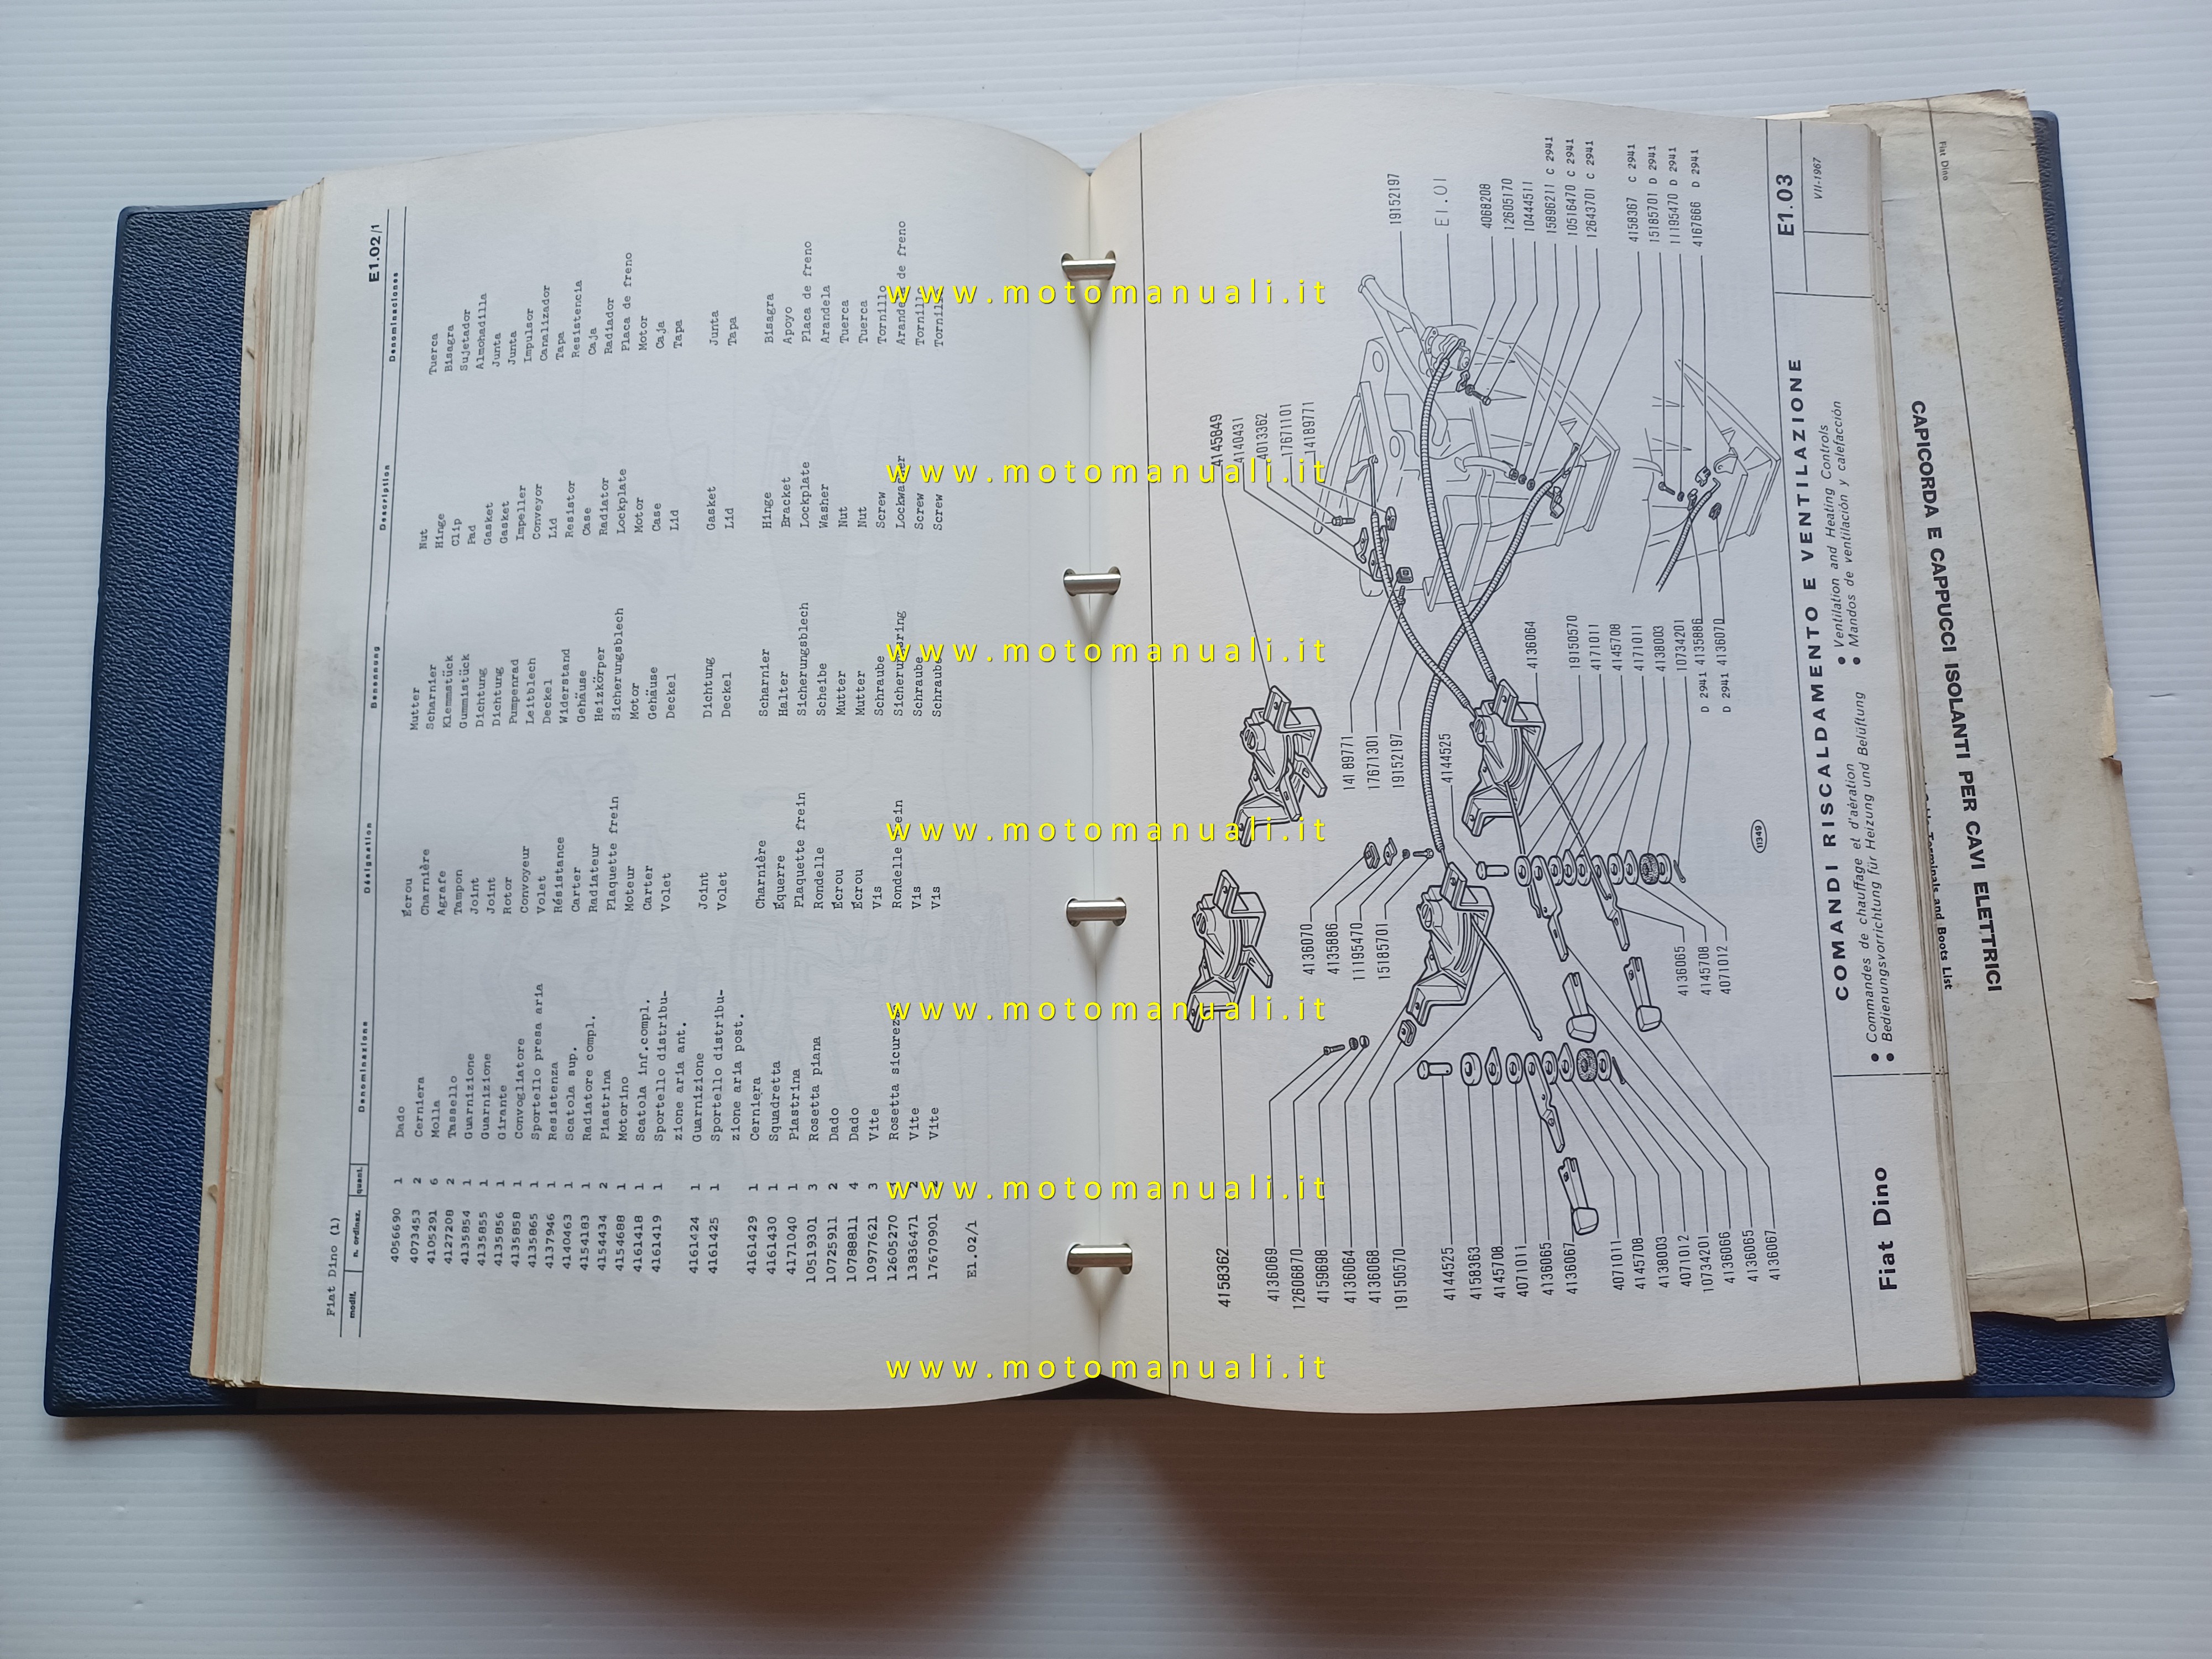 Fiat Dino (1)
E1.02/1
modif. n. ordinaz. quant. Denominazione Désignation Benennung Description Denominaciones
4056690 1 Dado Écrou Mutter Nut Tuerca
4073453 2 Cerniera Charnière Scharnier Hinge Bisagra
4105291 6 Molla Agrafe Klemmstück Clip Sujetador
4127208 2 Tassello Tampon Gummistück Pad Almohadilla
4135854 1 Guarnizione Joint Dichtung Gasket Junta
4135855 1 Guarnizione Joint Dichtung Gasket Junta
4135856 1 Girante Rotor Pumpenrad Impeller Impulsor
4135858 1 Convogliatore Convoyeur Leitblech Conveyor Canalizador
4135865 1 Sportello presa aria Volet Deckel Lid Tapa
4137946 1 Resistenza Résistance Widerstand Resistor Resistencia
4140463 1 Scatola sup. Carter Gehäuse Case Caja
4154183 1 Radiatore compl. Radiateur Heizkörper Radiator Radiador
4154434 2 Piastrina Plaquette frein Sicherungsblech Lockplate Placa de freno
4154688 1 Motorino Moteur Motor Motor Motor
4161418 1 Scatola inf.compl. Carter Gehäuse Case Caja
4161419 1 Sportello distribu- Volet Deckel Lid Tapa
zione aria ant.
4161424 1 Guarnizione Joint Dichtung Gasket Junta
4161425 1 Sportello distribu- Volet Deckel Lid Tapa
zione aria post.
4161429 1 Cerniera Charnière Scharnier Hinge Bisagra
4161430 1 Squadretta Équerre Halter Bracket Apoyo
4171040 1 Piastrina Plaquette frein Sicherungsblech Lockplate Placa de freno
10519301 3 Rosetta piana Rondelle Scheibe Washer Arandela
10725911 2 Dado Écrou Mutter Nut Tuerca
10788811 4 Dado Écrou Mutter Nut Tuerca
10977621 3 Vite Vis Schraube Screw Tornillo
12605270 Rosetta sicurezza Rondelle frein Sicherungsring Lockwasher Arandela de freno
13836471 2 Vite Vis Schraube Screw Tornillo
17670901 2 Vite Vis Schraube Screw Tornillo
E1.02/1
4158362
4136069
12606870
4159698
4136064
4136068
19150570
4144525
4158363
4145708
4071011
4136065
4136067
4071011
4145708
4138003
4071012
10734201
4136066
4136065
4136067
4136070
4135886
11195470
15185701
4136065
4145708
4071012
14189771
17671301
19152197
4144525
4136064
19150570
4171011
4145708
4171011
4138003
10734201
D 2941 4135886
D 2941 4136070
4145849
4140431
4013362
17671101
14189771
19152197
E1.01
4068208
12605170
10444511
15896211 C 2941
10516470 C 2941
12643701 C 2941
4158367 C 2941
15185701 D 2941
11195470 D 2941
4167666 D 2941
11349
Fiat Dino
COMANDI RISCALDAMENTO E VENTILAZIONE
● Commandes de chauffage et d'aération
● Bedienungsvorrichtung für Heizung und Belüftung
● Ventilation and Heating Controls
● Mandos de ventilación y calefacción
E1.03
VII-1967
Fiat Dino
Terminals and Boots List
CAPICORDA E CAPUCCI ISOLANTI PER CAVI ELETTRICI
www.motomanuali.it
www.motomanuali.it
www.motomanuali.it
www.motomanuali.it
www.motomanuali.it
www.motomanuali.it
www.motomanuali.it